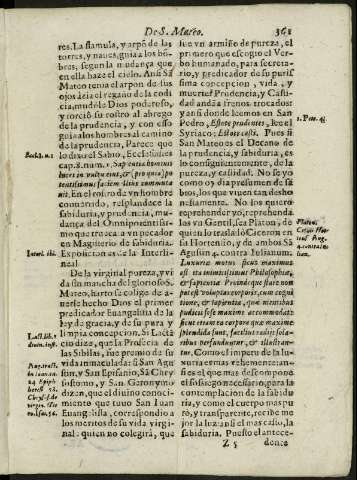 De S. Mateo. 361
res. La flamula, y arpon de las
torres, y naues, guia a los hõ-
bres, segun la mudança que
en ella haze el cielo. Ania Sã
Mateo tenia el arpon de sus
ojos àzia el organo de la codi
cia, mudòle Dios poderoso,
y torciò su rostro al abrego
de la prudencia, y con esso
guià a los hombres al camino
de la prudencia, Parece que
lo dixo el Sabio, Ecclesiastes
cap. 8. num. 1. Sapientia hominis
lucet in vultu eius, & (pro quo) po
tentissimus faciem illius commuta
uit. En el rostro de vn hombre
conuertido, resplandece la
sabiduria, y prudencia, mu-
dança del Omnipotentissi-
mo que trueca a vn pecador
en Magisterio de sabiduria.
Exposicion es de la Interli-
neal.
De la virginal pureza, y vi
da sin mancha del glorioso S.
Mateo, harto se colige de a-
uerle hecho Dios el primer
predicador Euangelista de la
ley de gracia, y de su pura y
limpia concepcion. Si Lactã
cio dize, que la Profecia de
las Sibilas, fue premio de su
vida immaculada: si San Agus
tin, y San Epifanio, Sã Chry
sostomo, y San Geronymo
dizen, que el diuino conoci-
miento que tuuo San Iuan
Euangelista, correspondio a
los meritos de su vida virgi
nal: quien no colegirà, que
Eccles. 8. n. 1
Interl. ibi.
Lact. lib. 1
diuin. inst.
August. tract.
in Ioan.
Epiph.
Chrys.
fue vn armiño de pureza, el
primero que escogio el Ver-
bo humanado, para secreta-
rio, y predicador de su puris
sima concepcion, vida, y
muerte? Prudencia, y Casti-
dad andã a frenos trocados:
y ansi donde leemos en San
Pedro, Estote prudentes, lee el
Syriaco: Estote casti. Pues si
San Mateo es el Decano de
la prudencia, y sabiduria, es
lo consiguientemente, de la
pureza, y castidad. No se yo
como oy dia presumen de sa
bios, los que viuen tan desho
nestamente. No los quiero
reprehender yo, reprehenda
los vn Gentil, sea Platon, de
quien lo traslado Ciceron en
su Hortensio, y de ambos Sã
Agustin 4. contra Iulianum.
Luxuria motus sicut maximus
est ita inimicissimus Philosophiæ,
& sapientiæ. Proinde que flare non
potest voluptas corporis, cum cogni
tione, & sapientia, quæ mentibus
pudicis sese maxime accommodat:
sicut enim terra corpore quæ maxime
splendida sunt, facilius radijs sola-
ribus perfunduntur, & illustran-
tur. Como el impetu de la luxu
ria es mas vehemente: an-
si es el que mas descompone
el sossiego necessario, para la
contemplacion de la sabidu
ria, y como el cuerpo mas pu
ro, y transparente, recibe me
jor la luz: ansi el mas casto, la
sabiduria. Puesto el antece-
1. Petr. 4.
Platon.
Cicer. Hor-
tens. Aug.
4. contra Iu-
lian.
Z 5 dente